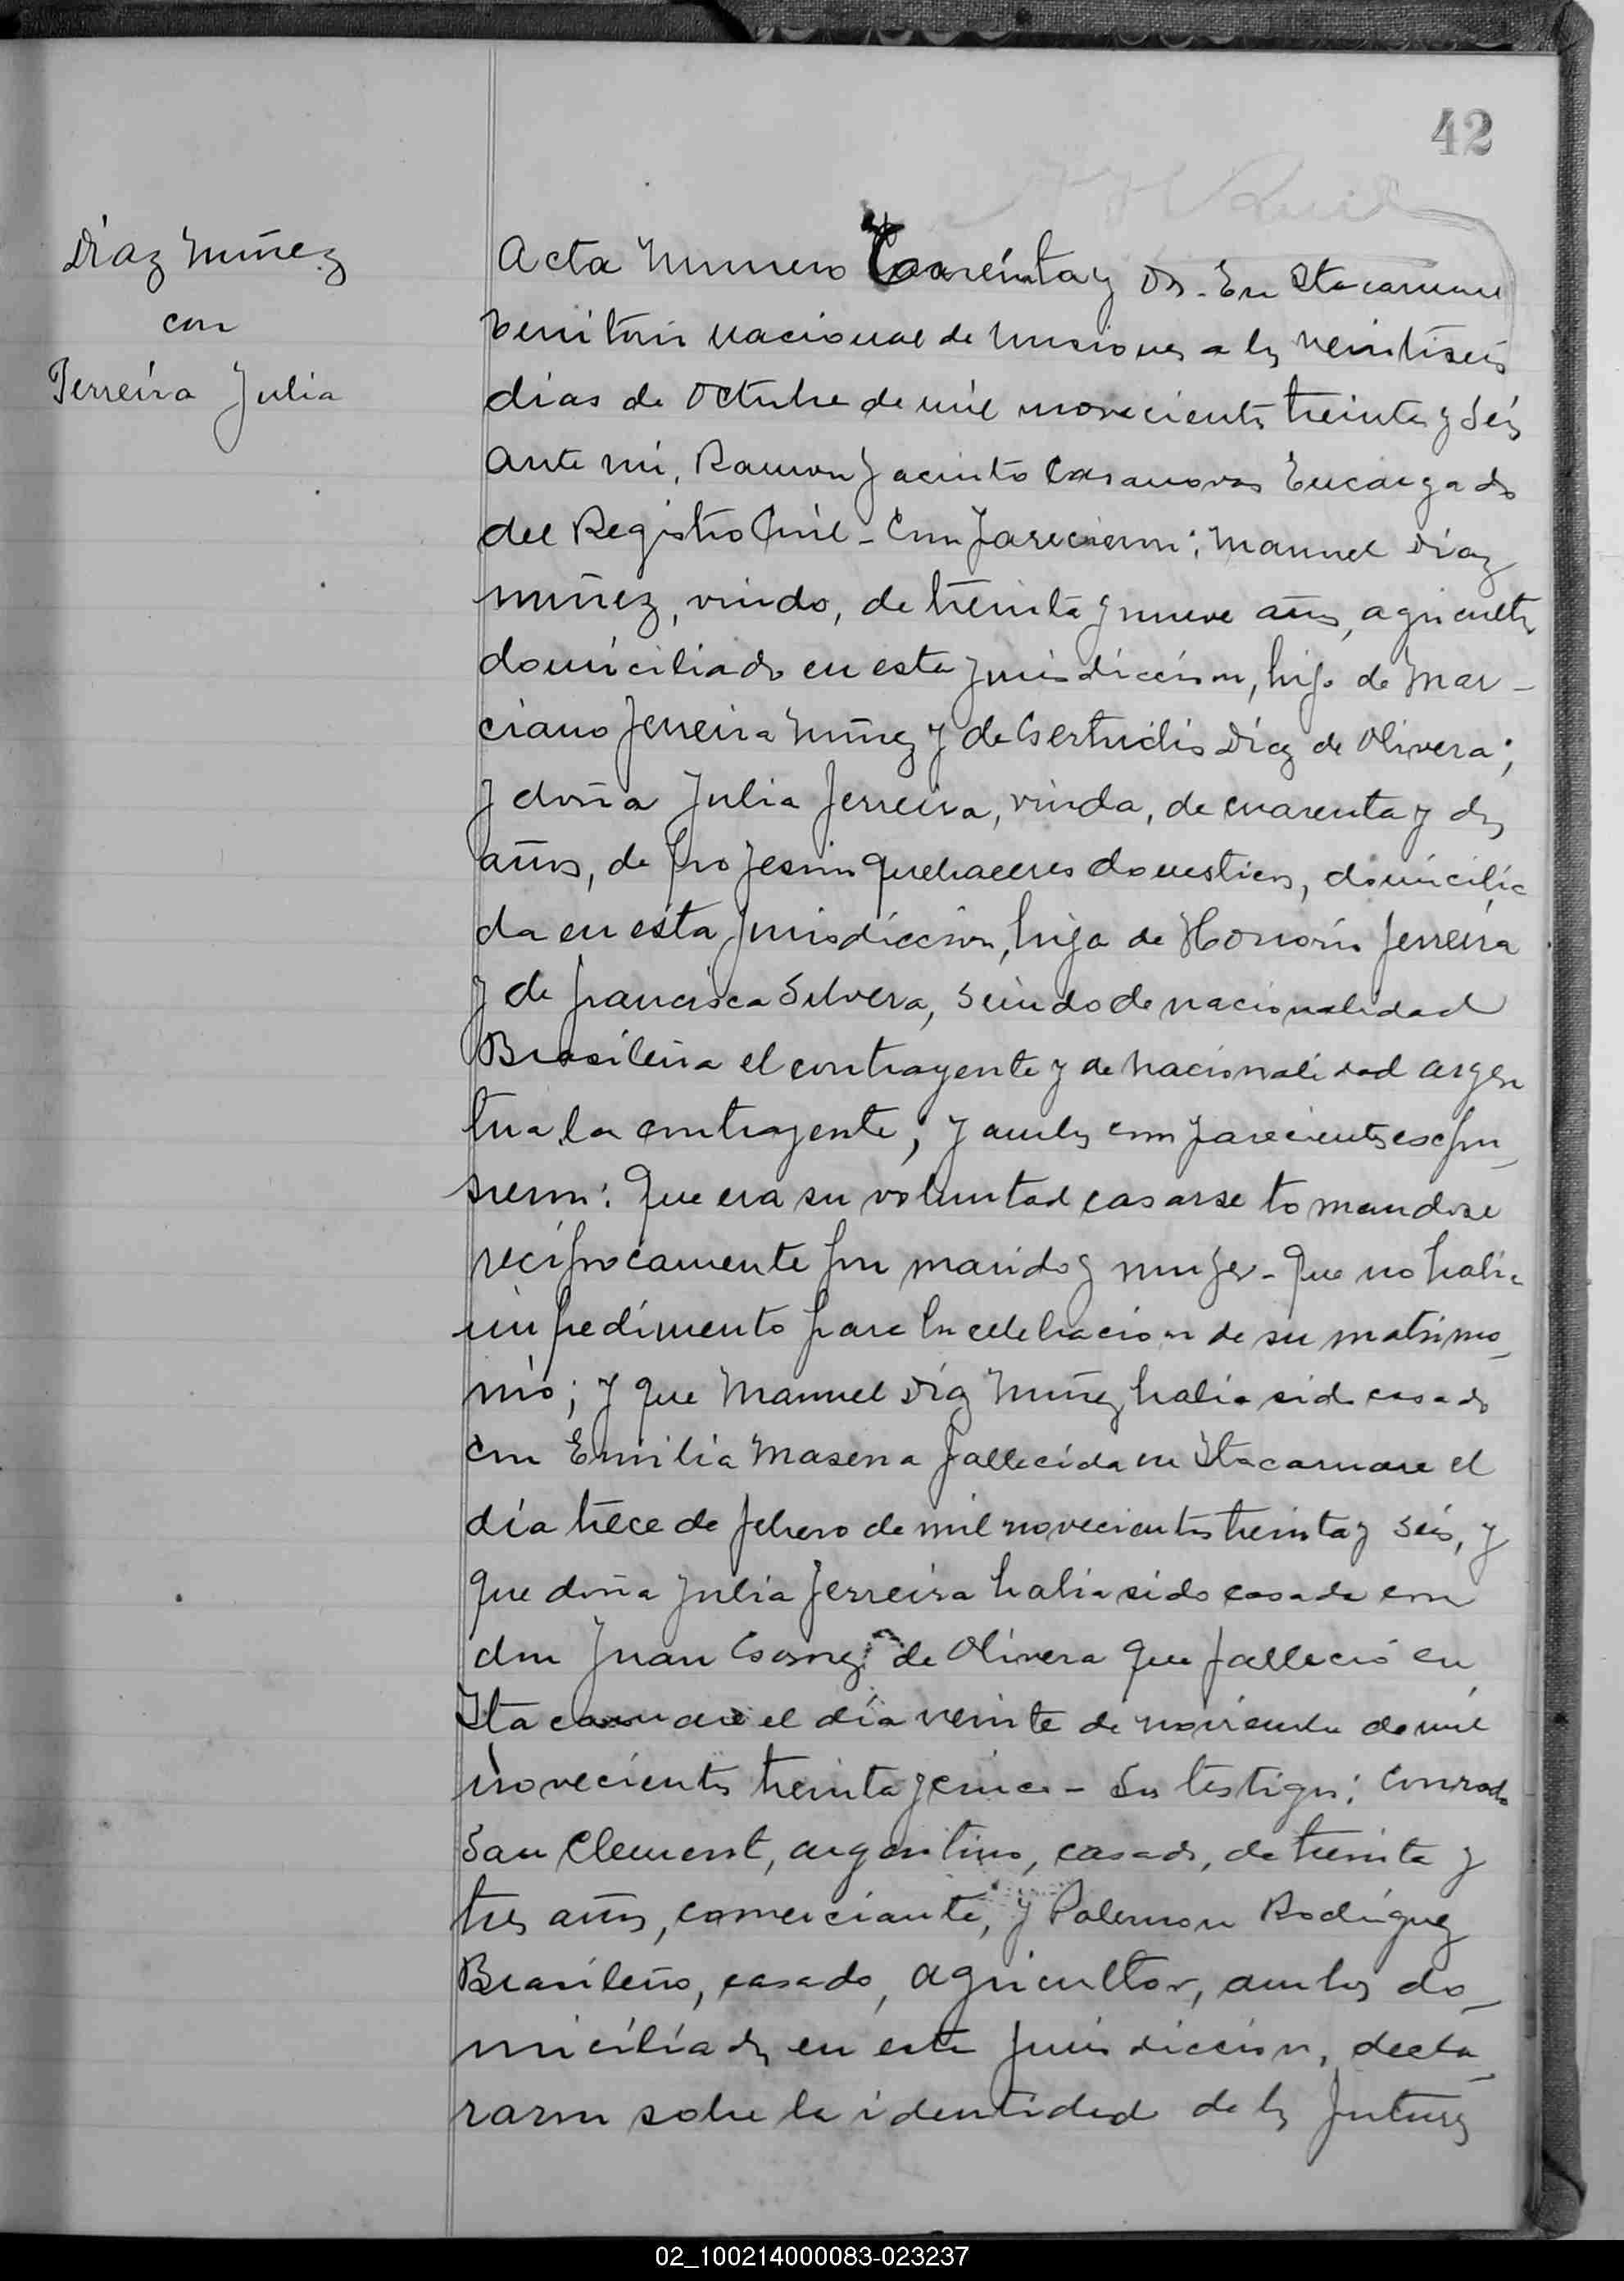 42
Diaz Nuñez
con
Ferreira Julia
Acta Numero Cuarenta y Dos. En Itacaruare
territorio nacional de Misiones a los veintiseis
dias de Octubre de mil novecientos treinta y seis
ante mi, Ramon Jacinto Casanovas Encargado
del Registro Civil - Comparecieron: Manuel Diaz
Nuñez, viudo, de treinta y nueve años, agricultor
domiciliado en esta jurisdiccion, hijo de Mar-
ciano Ferreira Nuñez y de Gertrudis Diaz de Olivera;
y doña Julia Ferreira, viuda, de cuarenta y dos
años, de profesion quehaceres domesticos, domicilia
da en esta jurisdiccion, hija de Honorio Ferreira
y de Francisca Silvera, siendo de nacionalidad
Brasileña el contrayente y de nacionalidad argen
tina la contrayente; y ambos comparecientes expu_
sieron: Que era su voluntad casarse tomandose
reciprocamente por marido y mujer - Que no habia
impedimento para la celebracion de su matrimo_
nio; y que Manuel Diaz Nuñez habia sido casado
con Emilia Masena fallecida en Itacaruare el
dia trece de febrero de mil novecientos treinta y seis, y
que doña Julia Ferreira habia sido casada con
don Juan Gomez de Olivera que fallecio en
Itacaruare el dia veinte de noviembre de mil
novecientos treinta y cinco - Los testigos: Conrado
San Clement, argentino, casado, de treinta y
tres años, comerciante, y Palemon Rodriguez
Brasileño, casado, agricultor, ambos do_
miciliados en esta jurisdiccion, decla_
raron sobre la identidad de los futuros
02_100214000083-023237